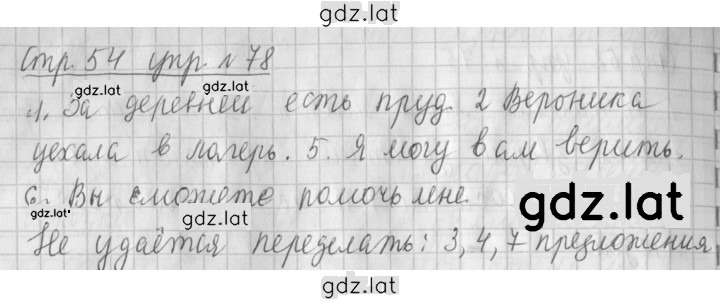 gdz.lat
Стр. 54 упр. №78
gdz.lat gdz.lat
1. За деревней есть пруд. 2 Вероника
уехала в лагерь. 5. Я могу вам верить.
6. Вы сможете помочь мне.
gdz.lat gdz.lat gdz.lat
Не удаётся переделать: 3, 4, 7 предложения
gdz.lat